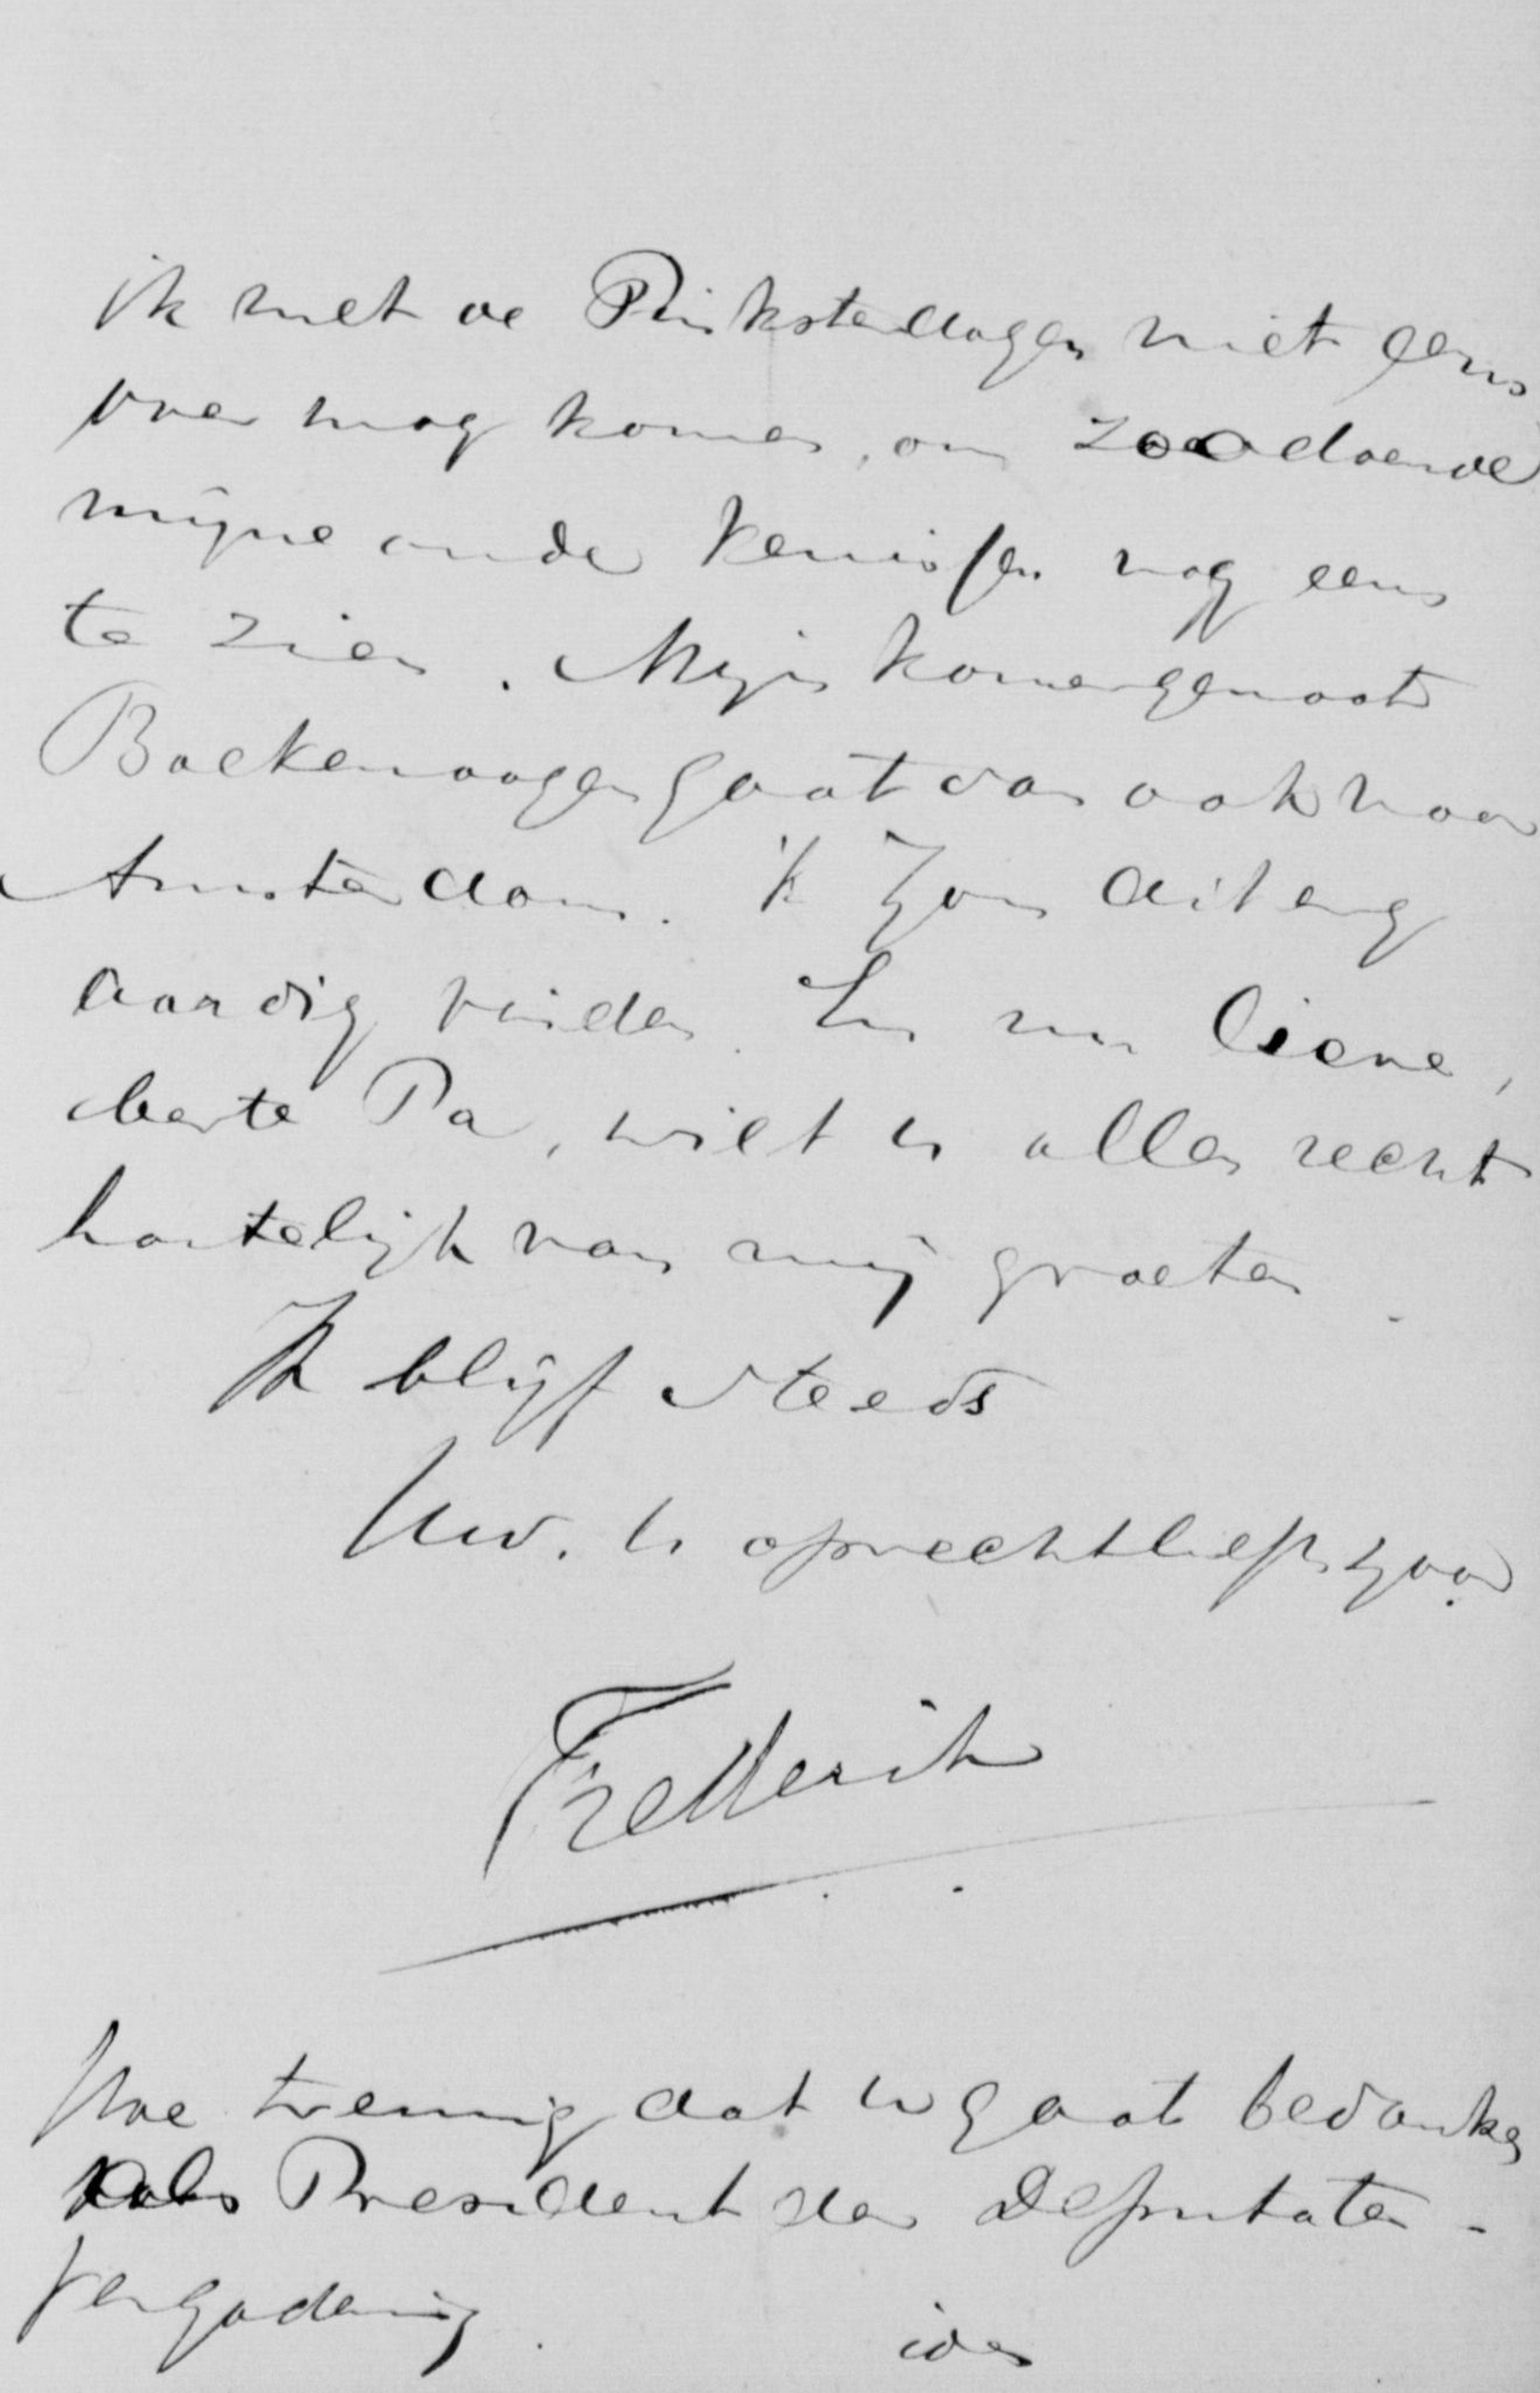 ik met de Pinksterdagen niet eens
over mag komen, om zoodoende
mijne oude kennissen nog eens
te zien. Mijn kamergenoot
Boekenoogen gaat dan ook naar
Amsterdam. 'k Zou dit erg
aardig vinden. En nu lieve,
beste Pa, wilt u allen recht
hartelijk van mij groeten.
Ik blijf steeds
Uw. u oprechtliefh. zoon
Frederik
Hoe treurig dat u gaat bedanken
als President der Deputaten-
vergadering.
idem